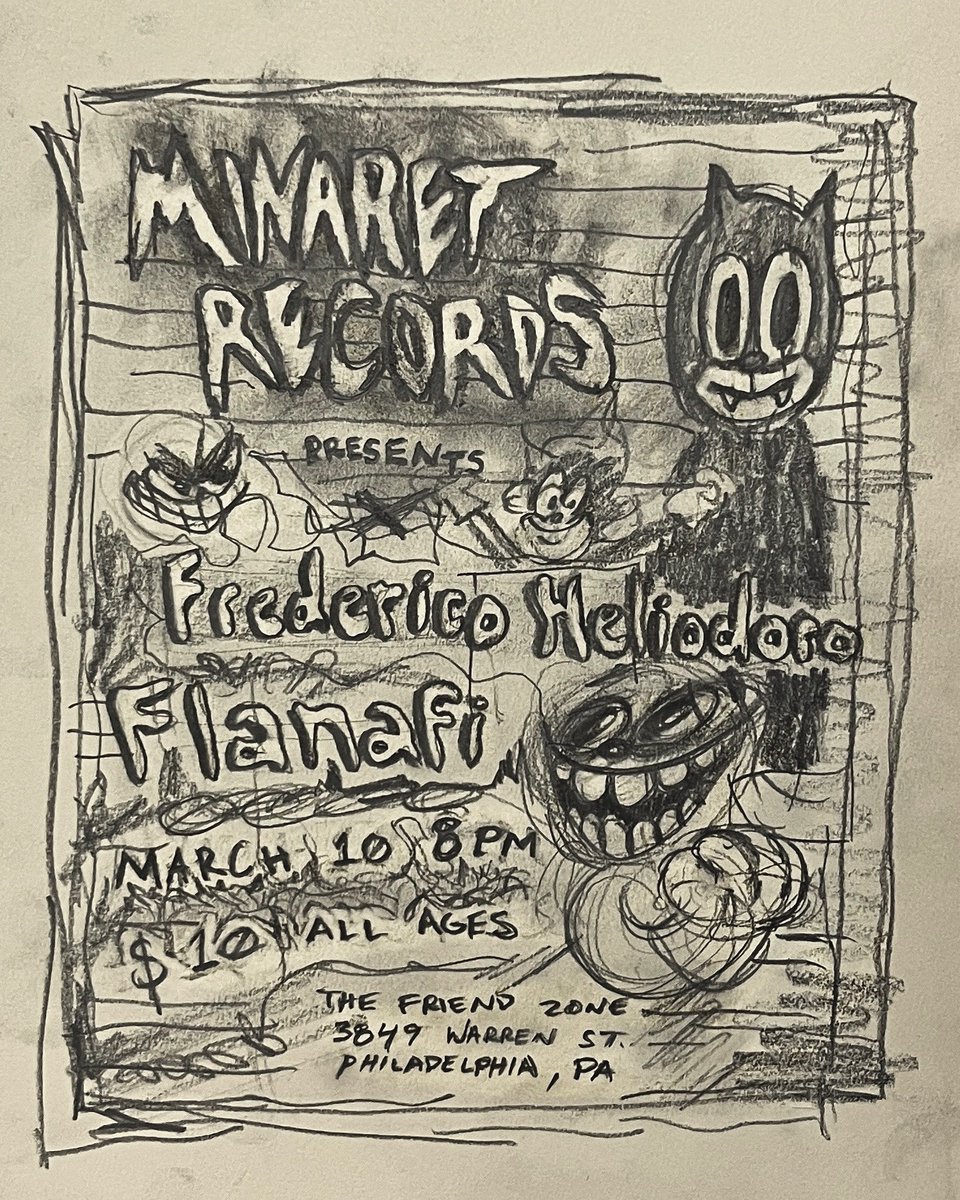 MINARET
RECORDS
PRESENTS
Frederico Heliodoro
Flanafi
MARCH 10 8PM
$10 ALL AGES
THE FRIEND ZONE
3849 WARREN ST.
PHILADELPHIA, PA